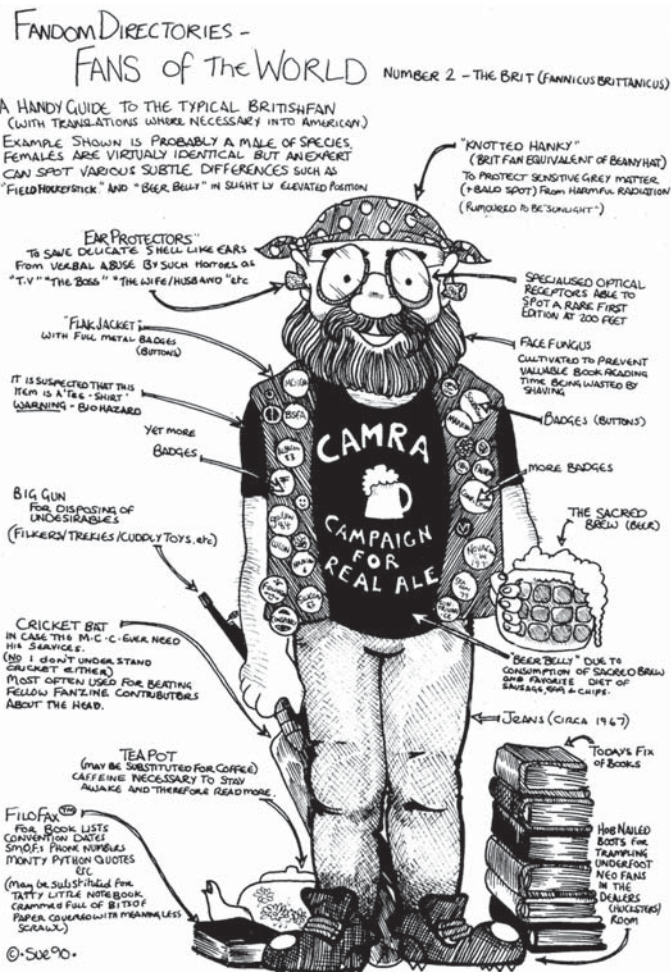 FANDOM DIRECTORIES -
FANS OF THE WORLD NUMBER 2 - THE BRIT (FANNICUS BRITTANICUS)
A HANDY GUIDE TO THE TYPICAL BRITISH FAN
(WITH TRANSLATIONS WHERE NECESSARY INTO AMERICAN.)
EXAMPLE SHOWN IS PROBABLY A MALE OF SPECIES.
FEMALES ARE VIRTUALY IDENTICAL BUT AN EXPERT
CAN SPOT VARIOUS SUBTLE DIFFERENCES SUCH AS
"FIELD HOCKEYSTICK" AND "BEER BELLY" IN SLIGHTLY ELEVATED POSITION
"KNOTTED HANKY"
(BRIT FAN EQUIVALENT OF BEANY HAT)
TO PROTECT SENSITIVE GREY MATTER
(+ BALD SPOT) FROM HARMFUL RADIATION
(RUMOURED TO BE "SUNLIGHT")
EAR PROTECTORS"
TO SAVE DELICATE SHELL LIKE EARS
FROM VERBAL ABUSE BY SUCH HORRORS AS
"T.V" "THE BOSS" "THE WIFE/HUSBAND" etc
SPECIALISED OPTICAL
RECEPTORS ABLE TO
SPOT A RARE FIRST
EDITION AT 200 FEET
"FLAK JACKET"
WITH FULL METAL BADGES
(BUTTONS)
FACE FUNGUS
CULTIVATED TO PREVENT
VALUABLE BOOK READING
TIME BEING WASTED BY
SHAVING
IT IS SUSPECTED THAT THIS
ITEM IS A "TEE-SHIRT"
WARNING - BIOHAZARD
BADGES (BUTTONS)
YET MORE
BADGES
MORE BADGES
BSFA
CAMRA
CAMPAIGN
FOR
REAL ALE
BIG GUN
FOR DISPOSING OF
UNDESIRABLES
(FILKERS/TREKIES/CUDDLY TOYS. etc)
THE SACRED
BREW (BEER)
CRICKET BAT
IN CASE THE M.C.C. EVER NEED
HIS SERVICES.
(NO I DON'T UNDERSTAND
CRICKET EITHER)
MOST OFTEN USED FOR BEATING
FELLOW FANZINE CONTRIBUTORS
ABOUT THE HEAD.
"BEER BELLY" DUE TO
CONSUMPTION OF SACRED BREW
AND FAVORITE DIET OF
SAUSAGE, EGG & CHIPS.
JEANS (CIRCA 1967)
TEAPOT
(MAY BE SUBSTITUTED FOR COFFEE)
CAFFEINE NECESSARY TO STAY
AWAKE AND THEREFORE READ MORE.
TODAYS FIX
OF BOOKS
FILOFAX TM
FOR BOOK LISTS
CONVENTION DATES
S.M.O.F.S PHONE NUMBERS
MONTY PYTHON QUOTES
ETC
(MAY BE SUBSTITUTED FOR
TATTY LITTLE NOTEBOOK
CRAMMED FULL OF BITS OF
PAPER COVERED WITH MEANINGLESS
SCRAWL)
HOB NAILED
BOOTS FOR
TRAMPLING
UNDERFOOT
NEO FANS
IN THE
DEALERS
(HUCKSTERS)
ROOM
©. SUE 90.